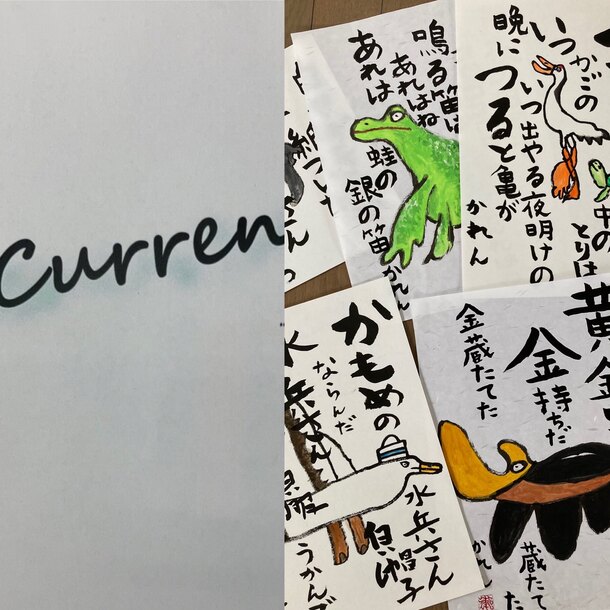 Curren
鳴る笛は
あれはね
あれは
蛙の
銀の笛
かれん
かごの
中の
とりは
いつ
いつ出やる
夜明けの
晩に
つると亀が
かれん
かもめの
水兵さん
ならんだ
水兵さん
白い帽子
黄金
金持ちだ
金蔵たてた
蔵たてた
かれん